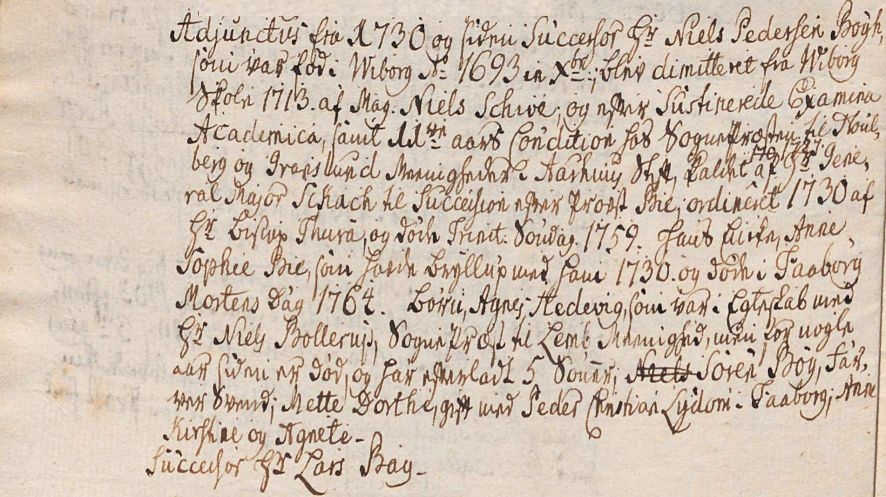 Adjunctus fra 1730 og siden Successor Hr Niels Pedersen Bøgh,
som var fød i Wiborg Ao 1693 in Xbr:, blev dimitteret fra Wiborg
Skole 1713 af Mag. Niels Schive, og efter sustinerede Examina
Academica, samt aars Condition hos SognePræsten til Hvil,
berg og Menigheder i Aarhuus Stift, kaldet af 1727 Hr Gene,
ral Major Schach til Succession efter Provst Bie, ordineret 1730 af
Hr Biskop Thura, og døde Trinit: Søndag 1759. Hans Enke, Anne
Sophie Bie, som havde Bryllup med ham 1730 og døde i Faaborg
Mortens Dag 1764. Børn, Agnes Hedevig, som var i Egteskab med
Hr Niels Bollerup, SognePræst til Lemb Meenighed, men for nogle
aar siden er død, og har efterladt 5 Sønner; Niels Søren Bøg, Far,
ver Svend; Mette Dorthe, gift med Peder Christian Lydom i Faaborg; Anne
Kirstine og Agnete.
Successor Hr Lars Bay.